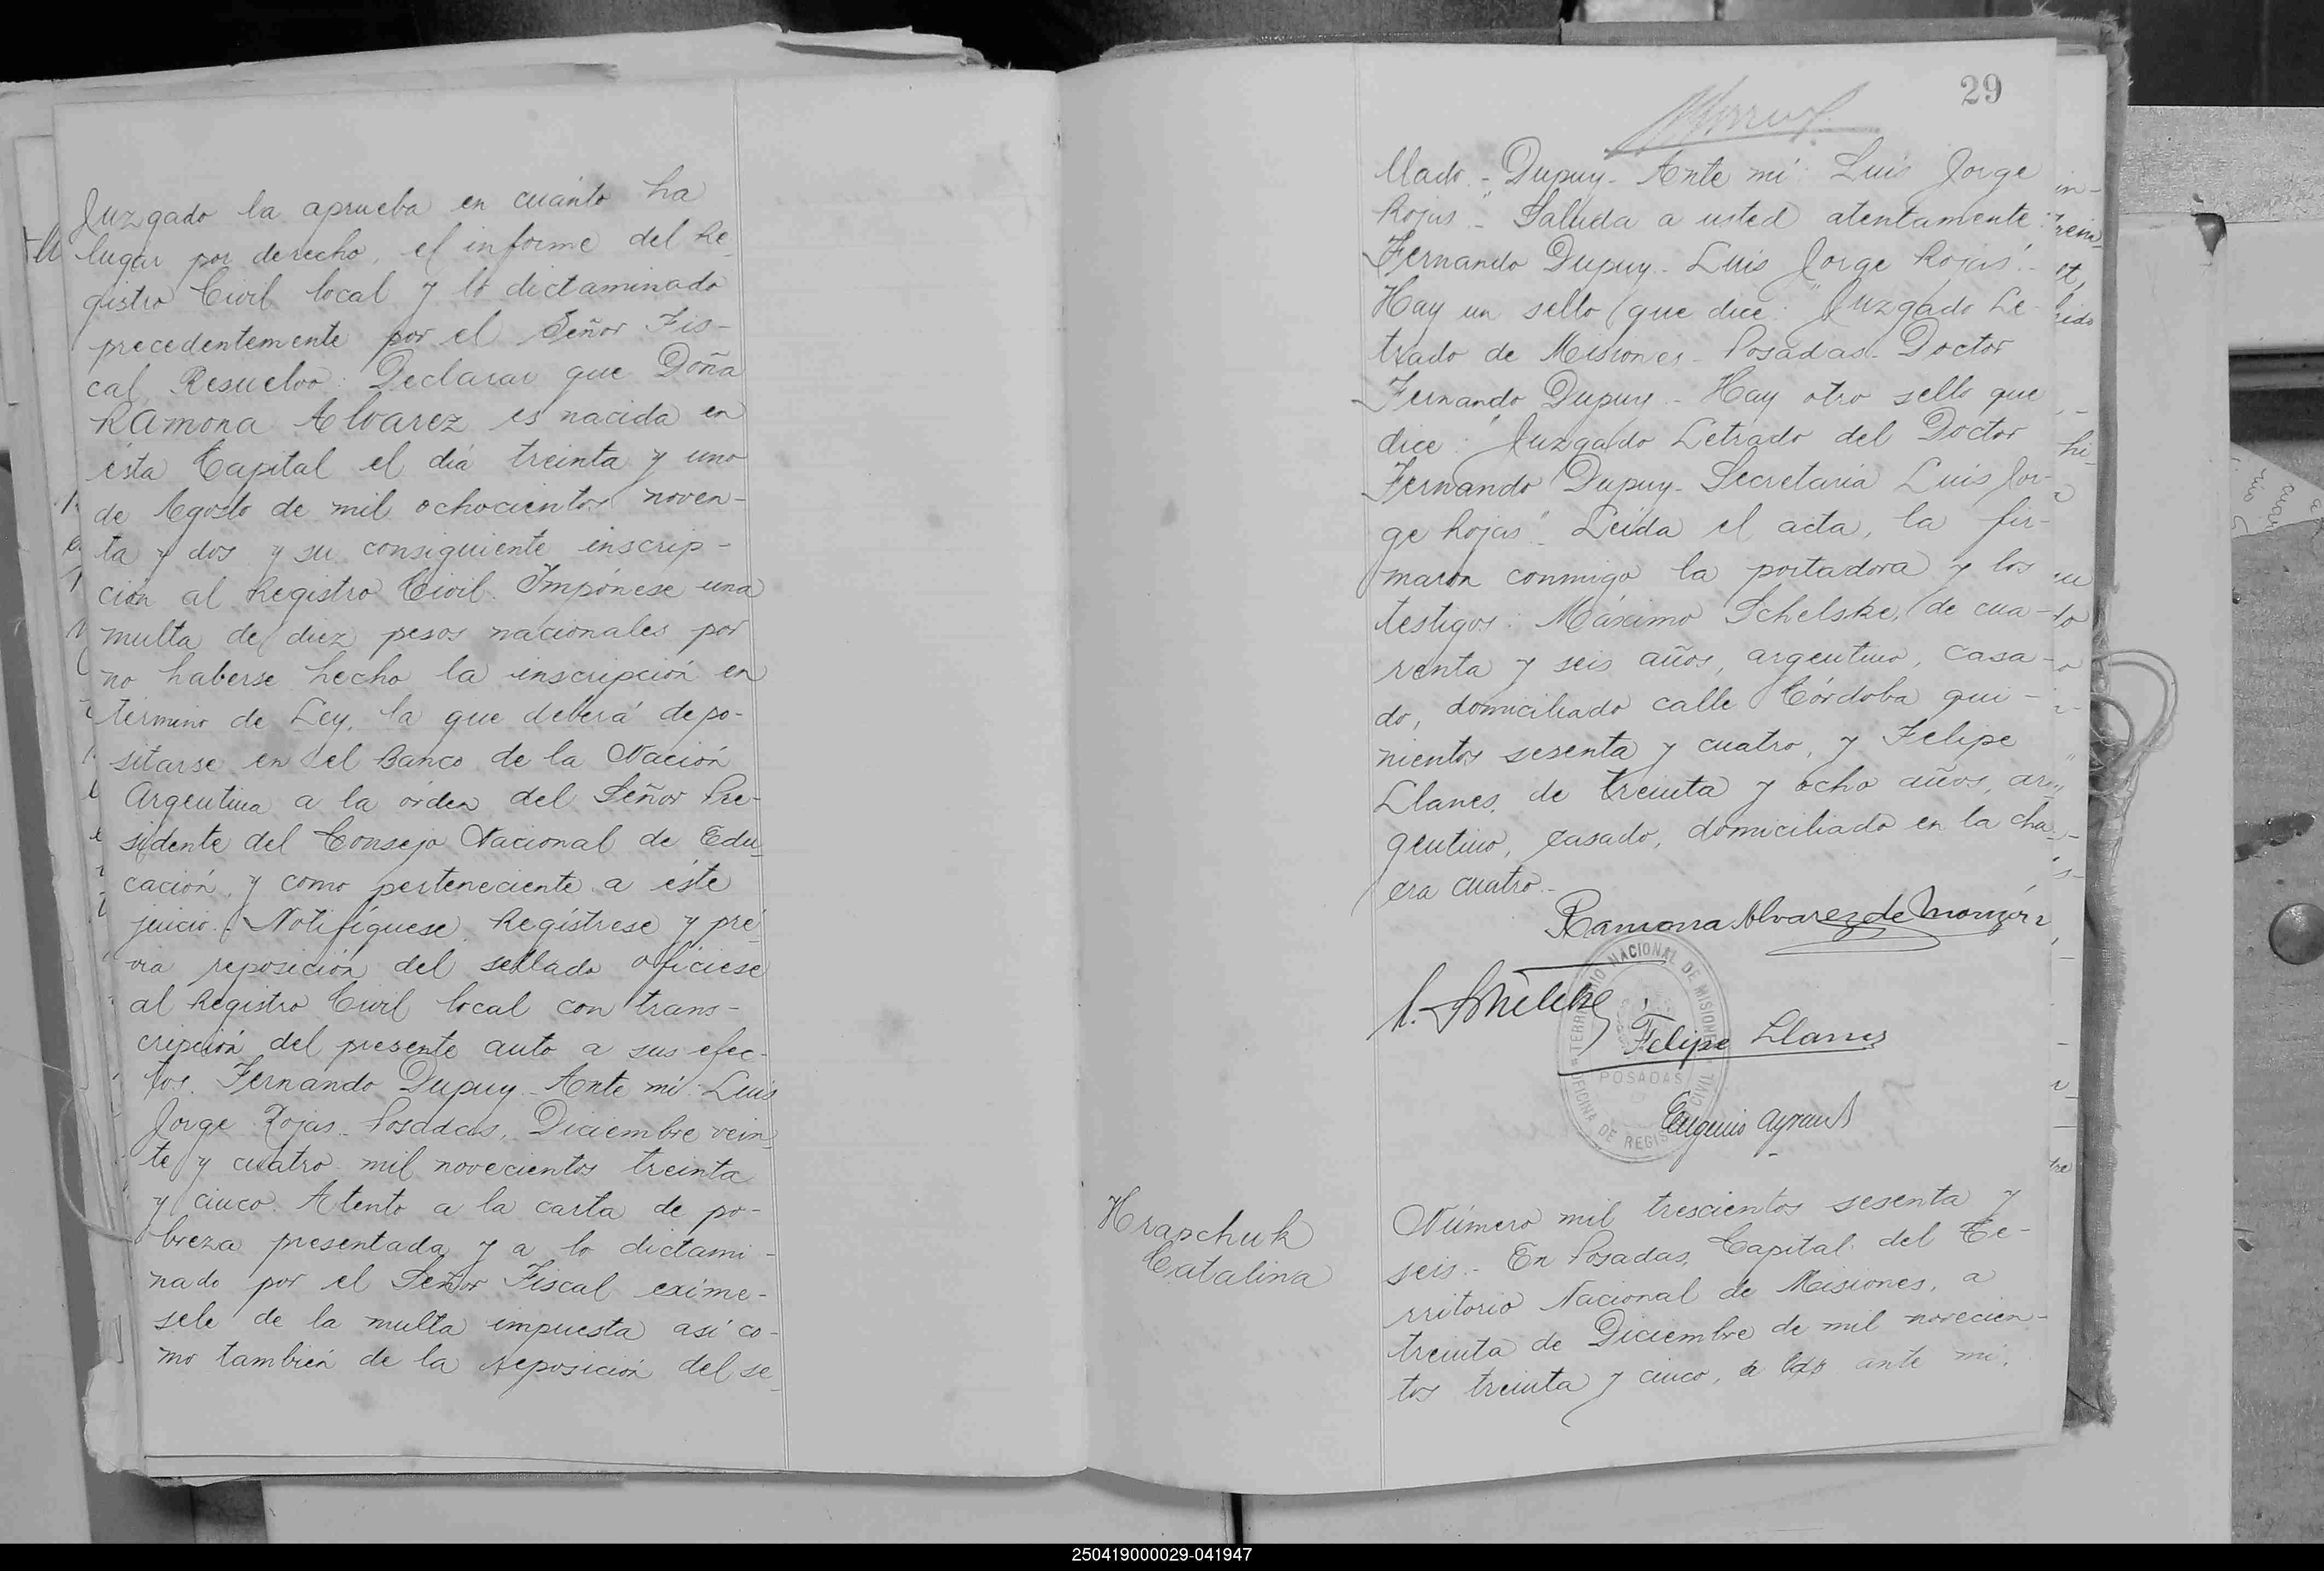 Juzgado la aprueba en cuánto ha
lugar por derecho, el informe del Re-
gistro Civil local y lo dictaminado
precedentemente por el Señor Fis-
cal, Resuelvo: Declarar que Doña
Ramona Alvarez es nacida en
ésta Capital el día treinta y uno
de Agosto de mil ochocientos noven-
ta y dos y su consiguiente inscrip-
ción al Registro Civil. Impónese una
multa de diez pesos nacionales por
no haberse hecho la inscripción en
término de Ley, la que deberá depo-
sitarse en el Banco de la Nación
Argentina a la órden del Señor Pre-
sidente del Consejo Nacional de Edu-
cación, y como perteneciente a éste
juicio. Notifíquese, Regístrese y pré-
via reposición del sellado ofíciese
al Registro Civil local con trans-
cripción del presente auto a sus efec-
tos. Fernando Dupuy - Ante mí: Luis
Jorge Rojas - Posadas, Diciembre vein-
te y cuatro mil novecientos treinta
y cinco. Atento a la carta de po-
breza presentada y a lo dictami-
nado por el Señor Fiscal exíme-
sele de la multa impuesta así co-
mo también de la reposición del se-
29
llado - Dupuy - Ante mí: Luis Jorge
Rojas" - Saluda a usted atentamente:
Fernando Dupuy - Luis Jorge Rojas" -
Hay un sello que dice: "Juzgado Le-
trado de Misiones - Posadas - Doctor
Fernando Dupuy - Hay otro sello que
dice: "Juzgado Letrado del Doctor
Fernando Dupuy - Secretaria Luis Jor-
ge Rojas" - Leída el acta, la fir-
maron conmigo la portadora y los
testigos: Máximo Schelske, de cua-
renta y seis años, argentino, casa-
do, domiciliado calle Córdoba qui-
nientos sesenta y cuatro, y Felipe
Llanes, de treinta y ocho años, ar-
gentino, casado, domiciliado en la cha-
cra cuatro.-
Ramona Alvarez de Monzón
Felipe Llanes
TERRITORIO NACIONAL DE MISIONES
POSADAS
OFICINA DE REGISTRO CIVIL
Eugenio
Hrapchuk
Catalina
Número mil trescientos sesenta y
seis.- En Posadas, Capital del Te-
rritorio Nacional de Misiones, a
treinta de Diciembre de mil novecien-
tos treinta y cinco, ante mí,
250419000029-041947